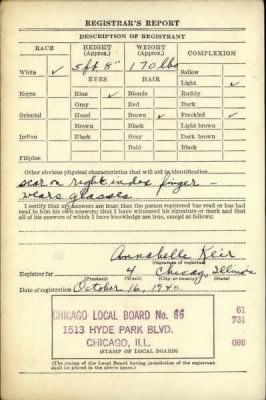 REGISTRAR'S REPORT
DESCRIPTION OF REGISTRANT
RACE HEIGHT (Approx.) WEIGHT (Approx.) COMPLEXION
White ✓ 5 ft 8" 170 lbs Sallow
EYES HAIR Light ✓
Negro Blue ✓ Blonde Ruddy
Gray Red Dark
Oriental Hazel Brown ✓ Freckled ✓
Brown Black Light brown
Indian Black Gray Dark brown
Bald Black
Filipino
Other obvious physical characteristics that will aid in identification
scar on right index finger -
wears glasses
I certify that my answers are true; that the person registered has read or has had
read to him his own answers; that I have witnessed his signature or mark and that
all of his answers of which I have knowledge are true, except as follows:
Annabelle Keir
(Signature of registrar)
Registrar for 4 Chicago, Illinois
(Precinct) (Ward) (City or county) (State)
Date of registration October 16, 1940
CHICAGO LOCAL BOARD No. 86 61
1513 HYDE PARK BLVD. 731
CHICAGO, ILL. 086
(STAMP OF LOCAL BOARD)
(The stamp of the Local Board having jurisdiction of the registrant
shall be placed in the above space.)